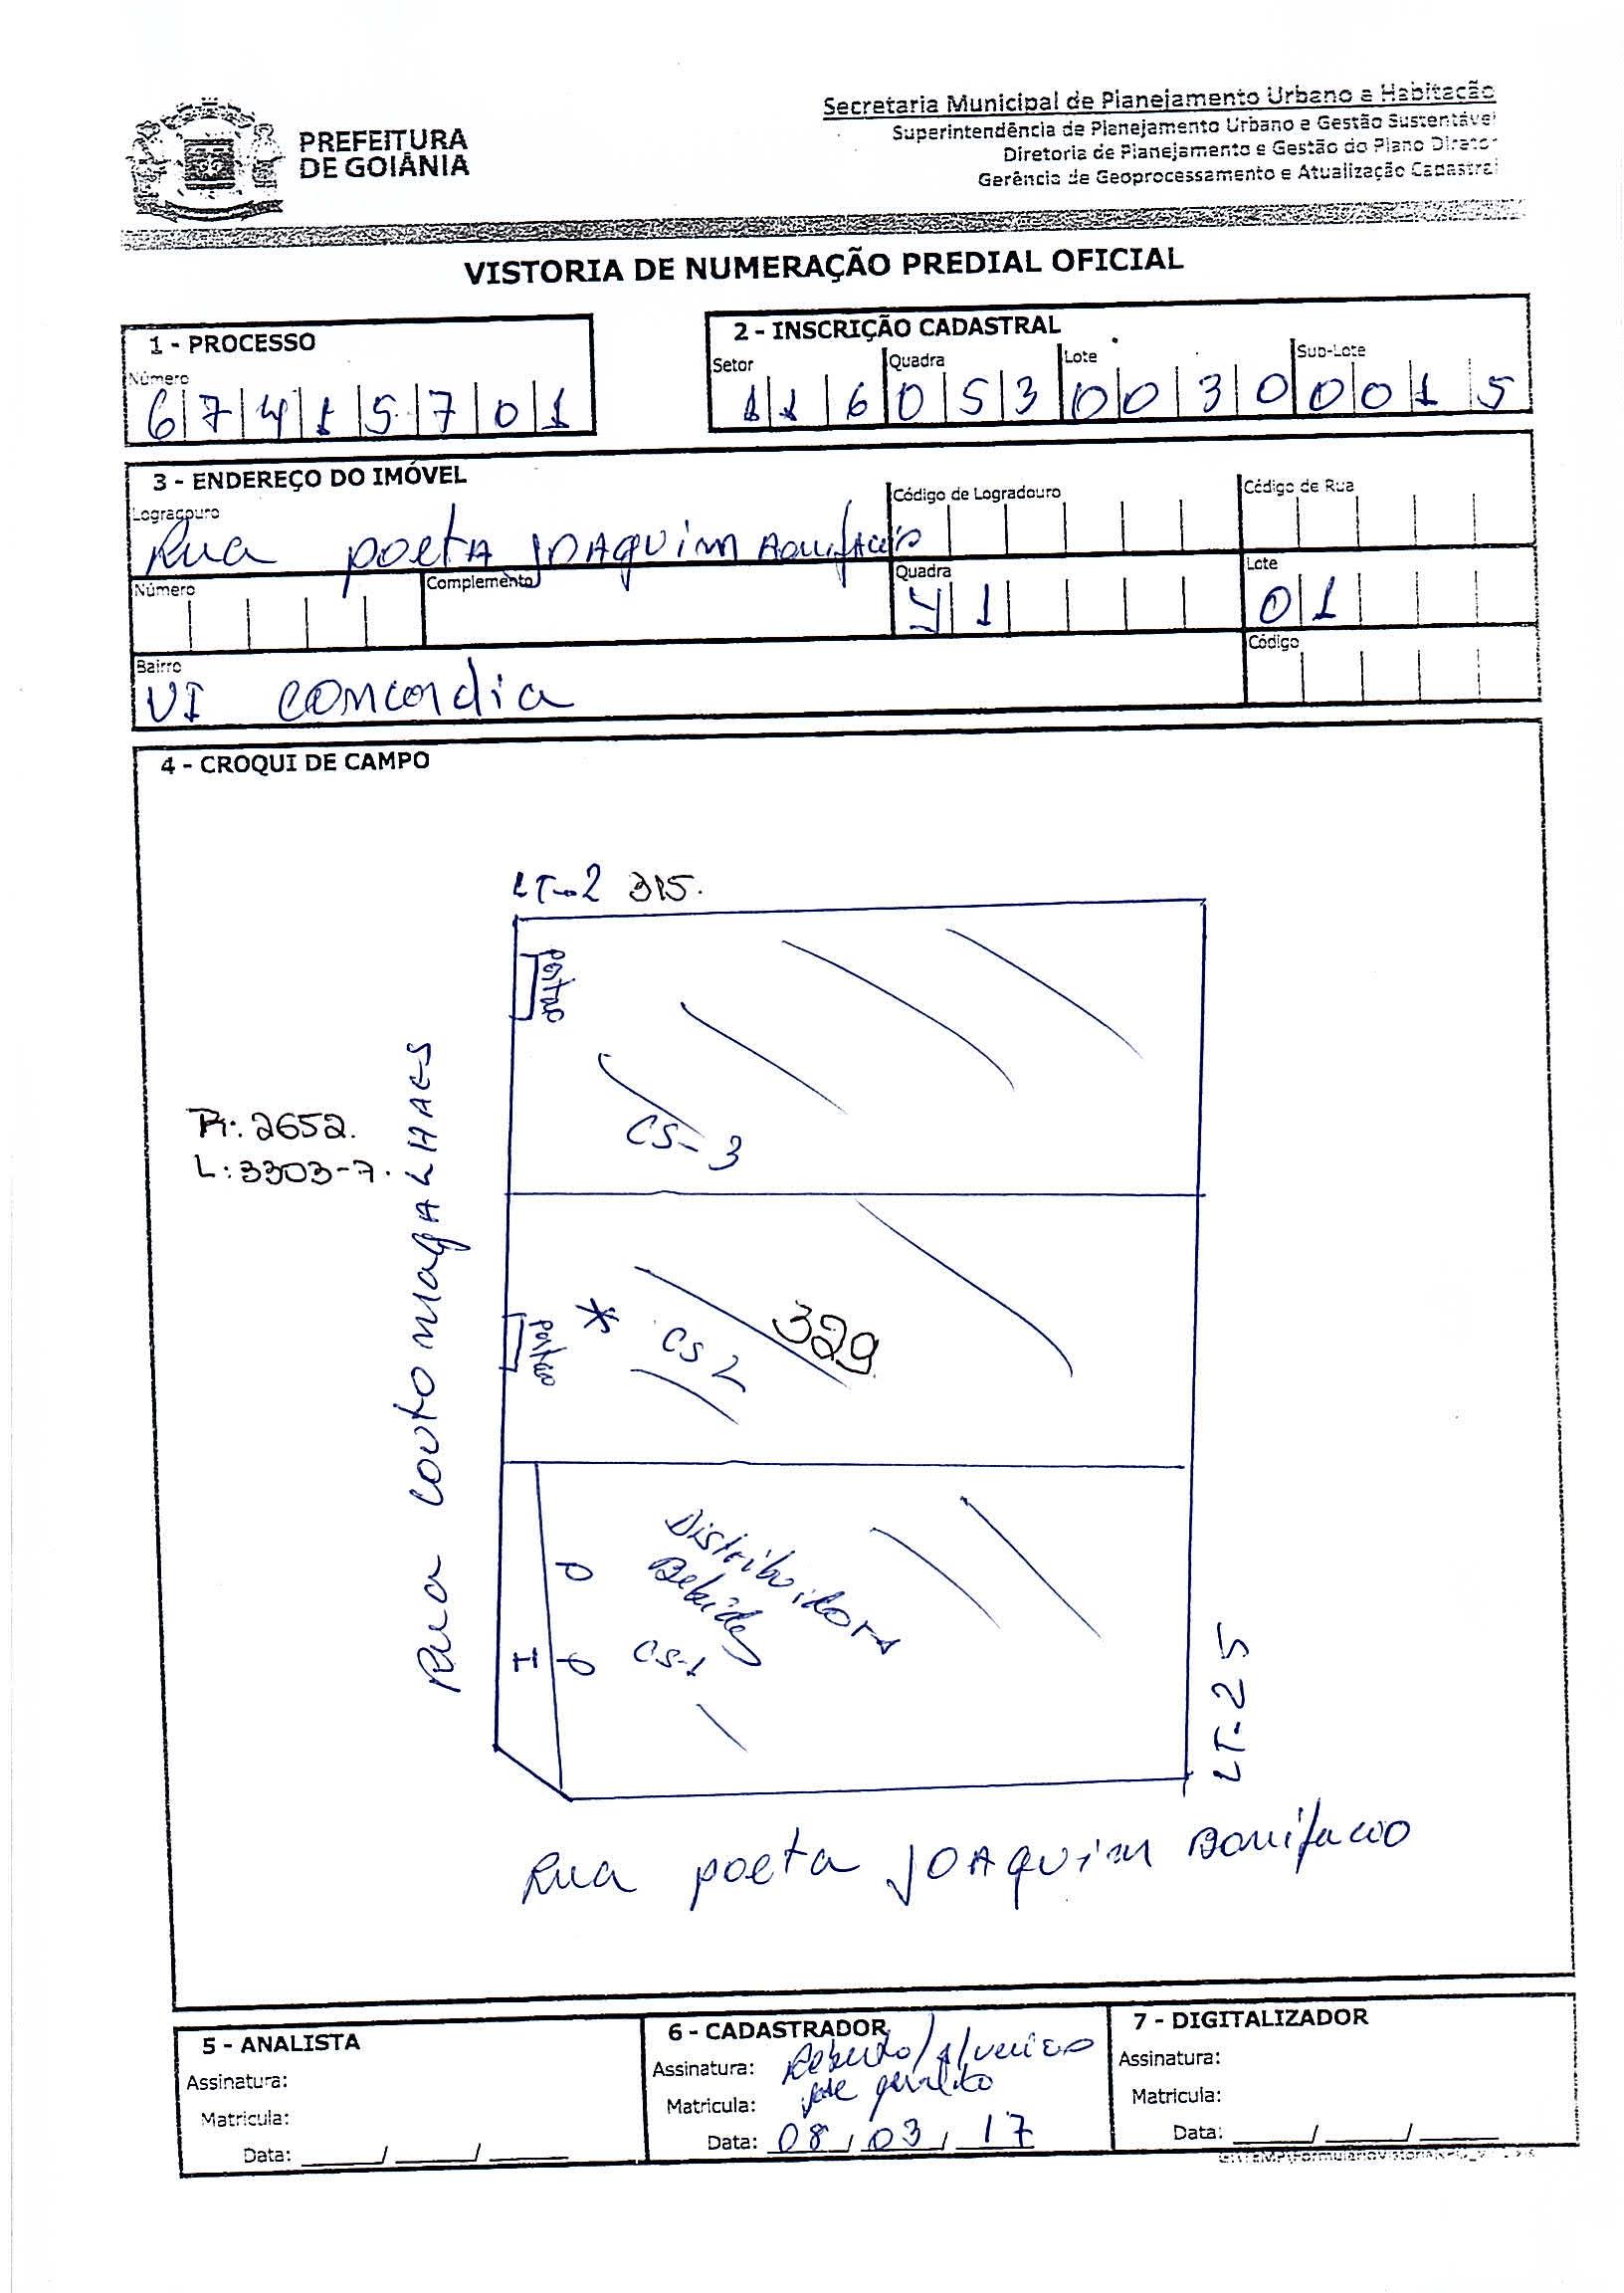 PREFEITURA
DE GOIÂNIA
Secretaria Municipal de Planejamento Urbano e Habitação
Superintendência de Planejamento Urbano e Gestão Sustentável
Diretoria de Planejamento e Gestão do Plano Diretor
Gerência de Geoprocessamento e Atualização Cadastral
VISTORIA DE NUMERAÇÃO PREDIAL OFICIAL
1 - PROCESSO
Número
67415701
2 - INSCRIÇÃO CADASTRAL
Setor Quadra Lote Sub-Lote
11605300300015
3 - ENDEREÇO DO IMÓVEL
Logradouro Código de Logradouro Código de Rua
Rua poeta JOAquim Bonifacio
Número Complemento Quadra Lote
Y1 01
Bairro Código
VI Concordia
4 - CROQUI DE CAMPO
LT-2 315.
portao
CS-3
Pr: 2652.
L: 3303-7.
Rua couto magALHAES
portao
* CS 2 329
Distribuidora
Bebidas
CS-1
LT-25
Rua poeta JOAquim Bonifacio
5 - ANALISTA
Assinatura:
Matricula:
Data: / /
6 - CADASTRADOR
Assinatura:
José geraldo
Matricula:
Data: 08/03/17
7 - DIGITALIZADOR
Assinatura:
Matricula:
Data: / /